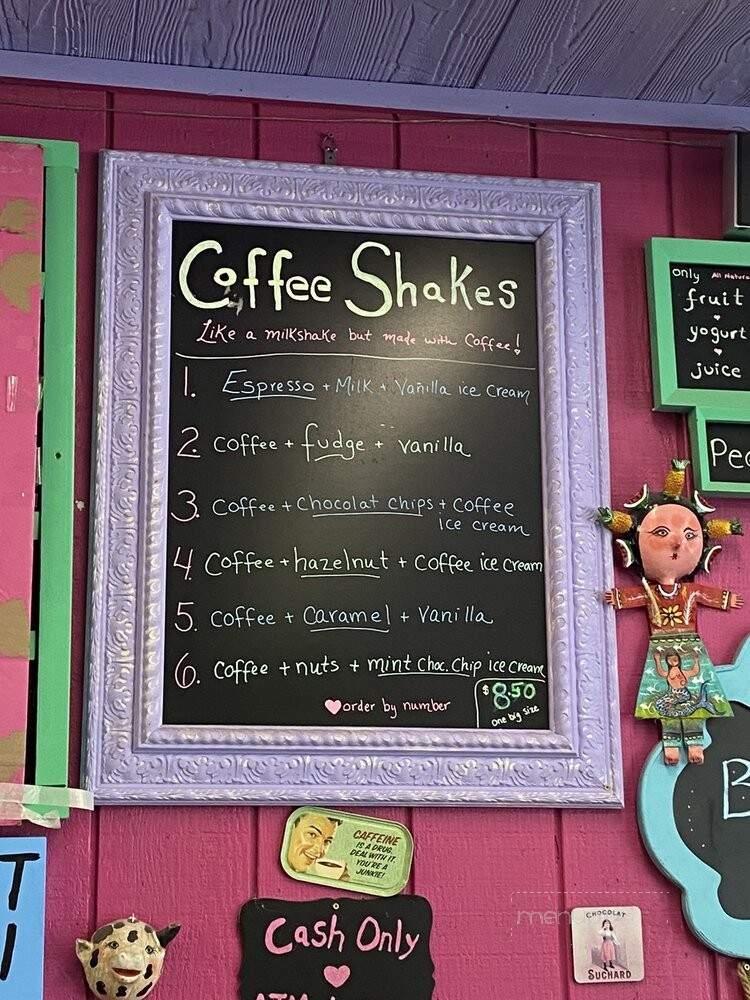 Coffee Shakes
Like a milkshake but made with Coffee!
1. Espresso + Milk + Vanilla ice Cream
2. Coffee + fudge + vanilla
3. Coffee + Chocolat chips + Coffee
ice cream
4. Coffee + hazelnut + Coffee ice Cream
5. Coffee + Caramel + Vanilla
6. Coffee + nuts + mint Choc. Chip ice Cream
order by number
$8.50
one big size
only All Natural
fruit
yogurt
juice
CAFFEINE
IS A DRUG.
DEAL WITH IT.
YOU'RE A
JUNKIE!
Cash Only
CHOCOLAT
SUCHARD